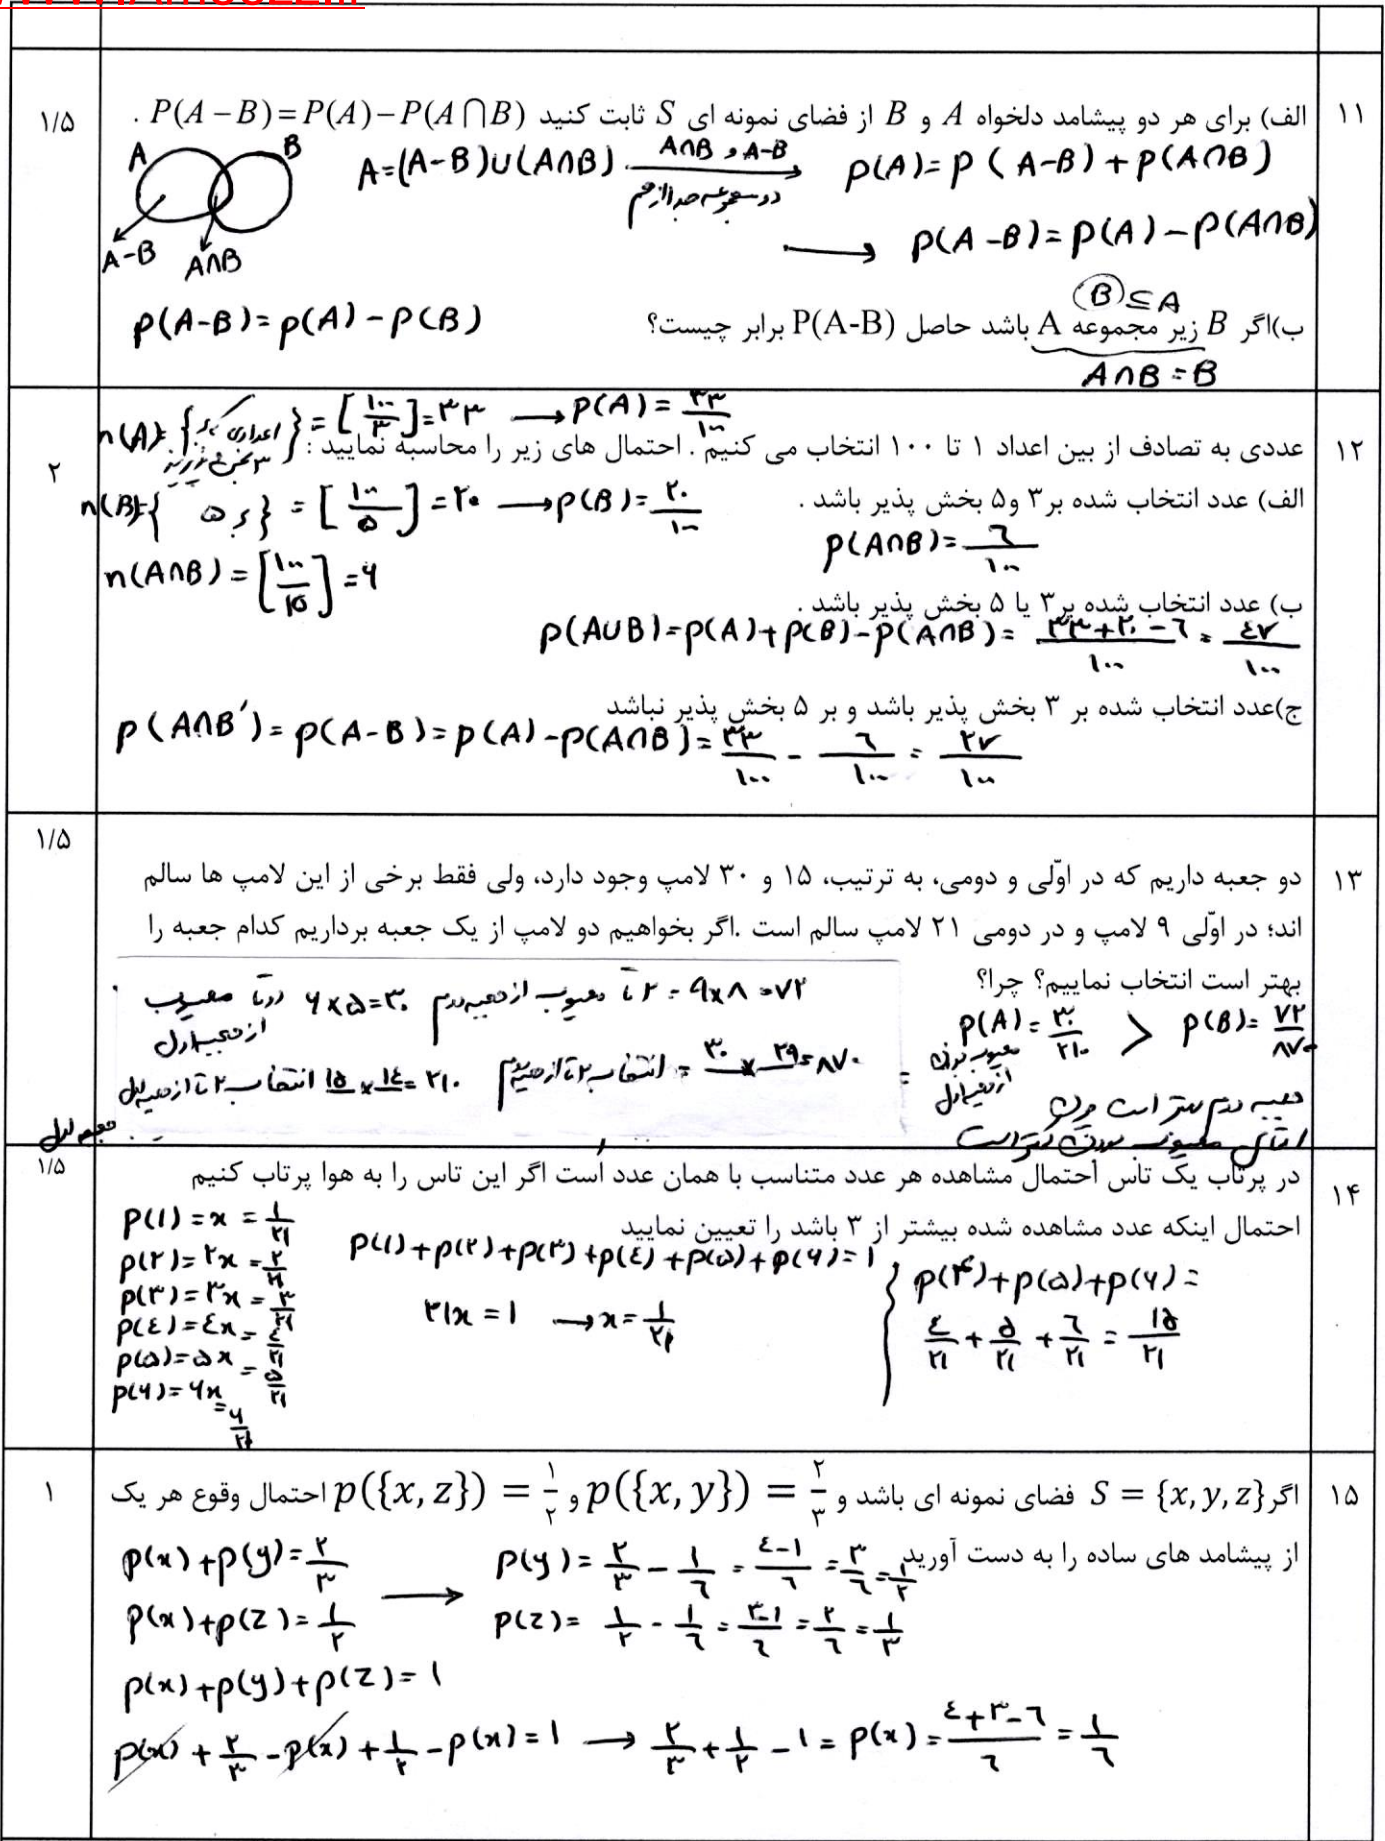 ۱۱
الف) برای هر دو پیشامد دلخواه A و B از فضای نمونه ای S ثابت کنید P(A − B) = P(A) − P(A ⋂ B) .
۱/۵
A B
A-B A∩B
A=(A-B)∪(A∩B) A∩B و A-B دو مجموعه جدا از هم → P(A)= P(A-B)+P(A∩B)
→ P(A-B)=P(A)-P(A∩B)
(B)⊆A
ب)اگر B زیر مجموعه A باشد حاصل P(A-B) برابر چیست؟
P(A-B)= P(A)-P(B)
A∩B=B
n(A)= {اعدادی که بر ۳ بخش پذیرند} = [۱۰۰/۳]=۳۳ → P(A)= ۳۳/۱۰۰
۱۲
عددی به تصادف از بین اعداد ۱ تا ۱۰۰ انتخاب می کنیم . احتمال های زیر را محاسبه نمایید :
۲
الف) عدد انتخاب شده بر۳ و۵ بخش پذیر باشد .
n(B)={ بر ۵ } = [۱۰۰/۵]=۲۰ → P(B)= ۲۰/۱۰۰
P(A∩B)= ۶/۱۰۰
n(A∩B)= [۱۰۰/۱۵]=۶
ب) عدد انتخاب شده بر۳ یا ۵ بخش پذیر باشد .
P(A∪B)=P(A)+P(B)-P(A∩B)= ۳۳+۲۰-۶/۱۰۰ = ۴۷/۱۰۰
ج)عدد انتخاب شده بر ۳ بخش پذیر باشد و بر ۵ بخش پذیر نباشد
P(A∩B′)= P(A-B)=P(A)-P(A∩B)= ۳۳/۱۰۰ - ۶/۱۰۰ = ۲۷/۱۰۰
۱۳
۱/۵
دو جعبه داریم که در اوّلی و دومی، به ترتیب، ۱۵ و ۳۰ لامپ وجود دارد، ولی فقط برخی از این لامپ ها سالم
اند؛ در اوّلی ۹ لامپ و در دومی ۲۱ لامپ سالم است .اگر بخواهیم دو لامپ از یک جعبه برداریم کدام جعبه را
بهتر است انتخاب نماییم؟ چرا؟
۶×۵=۳۰ دوتا معیوب از جعبه اول
۲ تا معیوب از جعبه دوم = ۹×۸=۷۲
P(A)= ۳۰/۲۱۰ > P(B)= ۷۲/۸۷۰
معیوب بودن از جعبه اول
انتخاب ۲ تا از جعبه اول ۱۵×۱۴=۲۱۰
انتخاب ۲ تا از جعبه دوم = ۳۰×۲۹=۸۷۰
جعبه دوم بهتر است چون
معیوب بودن کمتر است
جعبه اول
۱۴
۱/۵
در پرتاب یک تاس احتمال مشاهده هر عدد متناسب با همان عدد است اگر این تاس را به هوا پرتاب کنیم
احتمال اینکه عدد مشاهده شده بیشتر از ۳ باشد را تعیین نمایید
P(۱)=x = ۱/۲۱
P(۲)=۲x = ۲/۲۱
P(۳)=۳x = ۳/۲۱
P(۴)=۴x = ۴/۲۱
P(۵)=۵x = ۵/۲۱
P(۶)=۶x = ۶/۲۱
P(۱)+P(۲)+P(۳)+P(۴)+P(۵)+P(۶)=۱
۲۱x=۱ → x= ۱/۲۱
P(۴)+P(۵)+P(۶)=
۴/۲۱ + ۵/۲۱ + ۶/۲۱ = ۱۵/۲۱
۱۵
۱
اگر S = {x, y, z} فضای نمونه ای باشد و p({x, y}) = ۲/۳ و p({x, z}) = ۱/۲ احتمال وقوع هر یک
از پیشامد های ساده را به دست آورید
P(x)+P(y)= ۲/۳ → P(y)= ۲/۳ - ۱/۶ = ۴-۱/۶ = ۳/۶ = ۱/۲
P(x)+P(z)= ۱/۲ P(z)= ۱/۲ - ۱/۶ = ۳-۱/۶ = ۲/۶ = ۱/۳
P(x)+P(y)+P(z)=۱
P(x) + ۲/۳ - P(x) + ۱/۲ - P(x)=۱ → ۲/۳ + ۱/۲ - ۱ = P(x)= ۴+۳-۶/۶ = ۱/۶